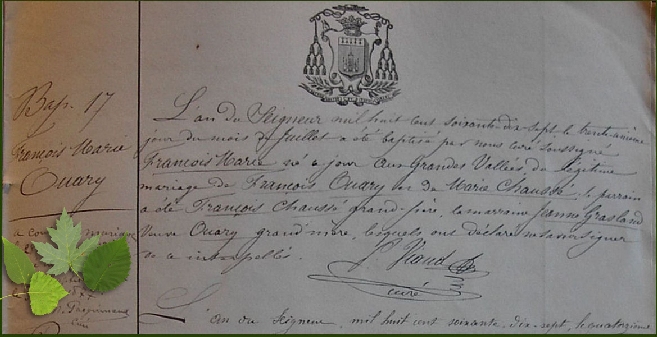 Bap. 17
François Marie
Ouary
L'an du Seigneur mil huit cent soixante-dix sept le trente-unième
jour du mois de Juillet a été baptisé par nous curé soussigné
François Marie né ce jour aux Grandes Vallées, du légitime
mariage de François Ouary et de Marie Chaussé, le parrain
a été François Chaussé grand-père, la marraine Jeanne Grasland
Veuve Ouary grand'mère, lesquels ont déclaré ne savoir signer
de ce interpellés.
Viaud
curé
a
curé
L'an du Seigneur, mil huit cent soixante-dix-sept, le quatorzième